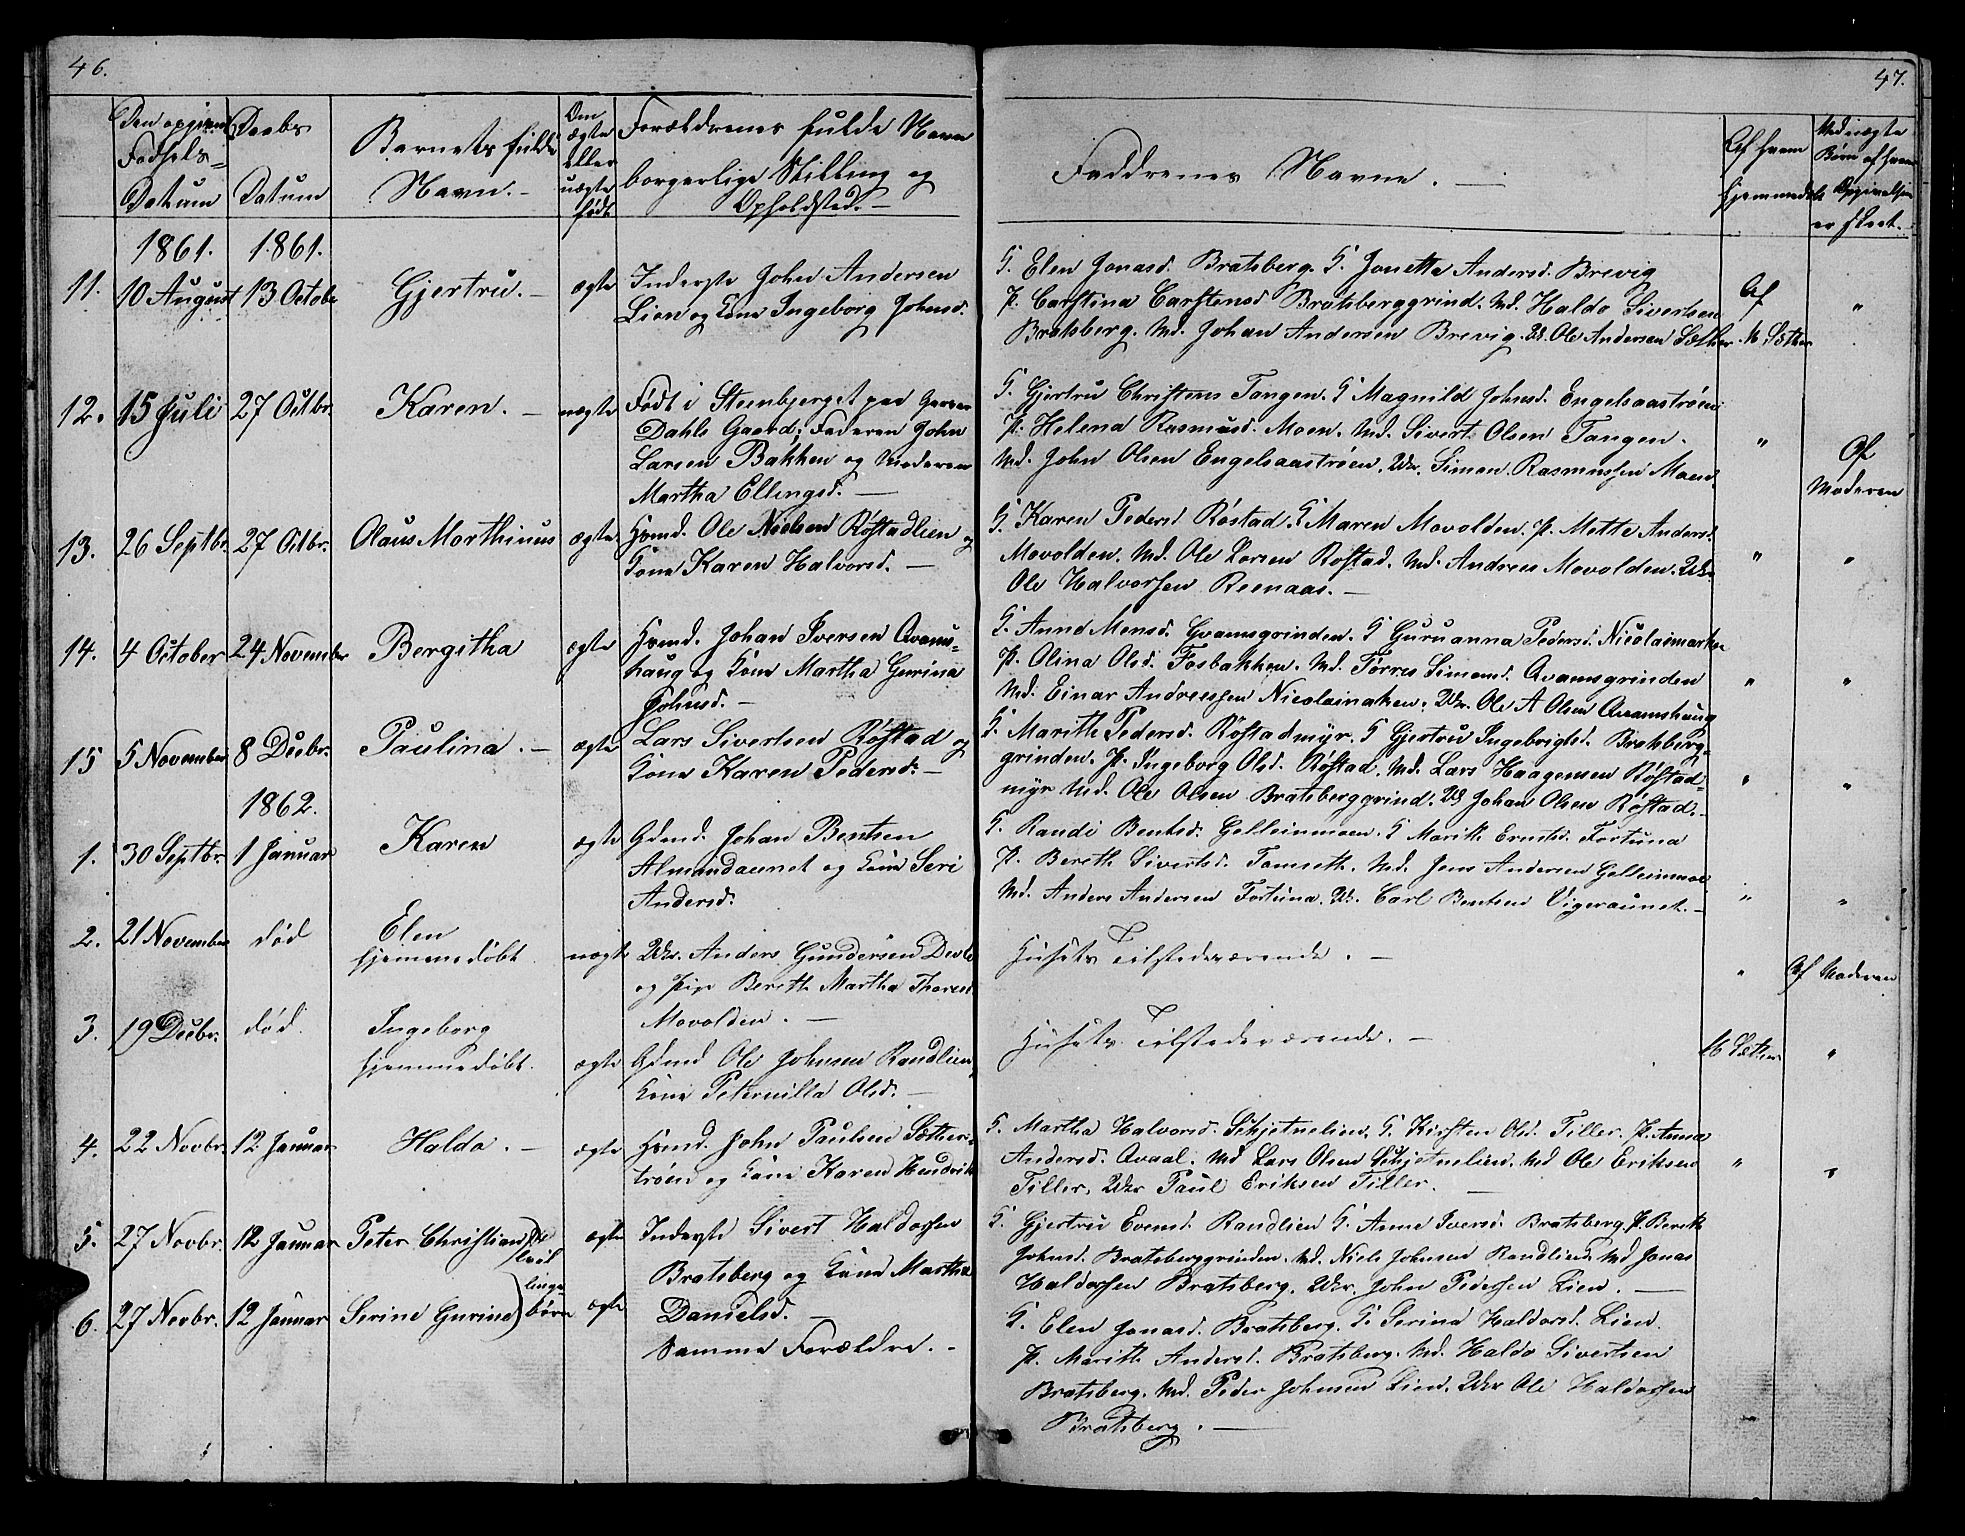 46.
Den opgivne Fødsels-Datum
Daabs Datum
Barnets fulde Navn. -
Om ægte eller uægte født
Forældrenes fulde Navn borgerlige Stilling og Opholdsted. -
1861. 1861.
11. 10 August 13 Octobr Gjertru. - ægte Inderste John Andersen
Lien og Kone Ingeborg Johnsd.
12. 15 Juli 27 Octbr. Karen. - uægte Født i Steenbjerget paa
Dahls Gaard; Faderen John
Larsen Bakken og Moderen
Martha Ellingsd. -
13. 26 Septbr. 27 Octbr. Olaus Morthinus ægte Hsmd. Ole Nielsen Røstadlien og
Kone Karen Halvorsd. -
14. 4 October 24 November Bergitha ægte Hsmd. Johan Iversen Qvams-
haug og Kone Martha Gurina
Johnsd. -
15 5 November 8 Decbr. Paulina. - ægte Lars Sivertsen Røstad og
Kone Karen Pedersd. -
1862.
1. 30 Septbr. 1 Januar Karen ægte Gdmd. Johan Bentsen
Almundaunet og Kone Seri
Andersd.
2. 21 November død Elen
hjemmedøbt. uægte Ukr. Anders Gundersen Devle
og Pige Bereth Martha Thoresd.
Movolden. -
3. 19 Decbr. død. Ingeborg
hjemmedøbt. ægte Gdmd Ole Johnsen Randlien,
Kone Peternilla Olsd. -
4. 22 Novbr. 12 Januar Haldo. - ægte Hsmd. John Paulsen Sæther-
trøen og Kone Karen Hendrik
5. 27 Novbr. 12 Januar Peter Christian ægte Inderste Sivert Haldorsen
Bratsberg og Kone Martha
Danielsd.
6. 27 Novbr. 12 Januar Serine Gurine tvillinge børn ægte
Samme Forældre. -
47.
Faddrenes Navne. -
Af hvem hjemmedøbt
Ved uægte Børn af hvem Opgivelsen er skeet.
G. Elen Jonasd. Bratsberg. G. Jonetta Andersd. Brevig
P. Carstina Carstensd Bratsberggrind. Md. Haldo Sivertsen
Bratsberg. Md. Johan Andersen Brevig. Uk. Ole Andersen Sæther. Af M. Sæther "
G. Gjertru Christens Tangen. G Magnild Johnsd. Engelsaastrøen
P. Helena Rasmusd. Moen. Md. Sivert Olsen Tangen.
Md. John Olsen Engelsaastrøen. Ukr. Simon Rasmussen Moen. " Af Moderen
G. Karen Pedersd Røstad. G Maren Movolden. P. Mette Andersd.
Movolden. Md. Ole Larsen Røstad. Md. Andreas Movolden. Ukr
Ole Halvorsen Reenaas. - " "
G. Anne Monsd. Qvamsgrinden. G Guruanna Pedersd.
P. Olina Olsd. Fosbakken. Md. Torres Simonsd. Qvamsgrinden
Md. Einar Andreassen Ukr. Ole A Olsen Qvamshaug " "
G. Marith Pedersd. Røstadmyr. G Gjertru Ingebrigtsd. Bratsberg-
grinden. P. Ingeborg Olsd. Røstad. Md. Lars Haagensen Røstad-
myr Md. Ole Olsen Bratsberggrind. Uk Johan Olsen Røstad. - " "
G. Randi Bentsd. Gelleinmoen. G Marith Ernstsd. Fortuna
P. Bereth Sivertsd. Tomseth. Md. Jens Andersen Gelleinmoe
Md. Anders Andersen Fortuna. Uk. Carl Bentsen Vigeraunet. - " "
Husets Tilstedeværende. - " Af Moderen
Husets Tilstedeværende. - M Sæther "
G. Martha Halvorsd. Schjetnelien. G. Kirsten Olsd. Tiller. P. Anna
Andersd. Qvaal. Md Lars Olsen Schjetnelien. Md Ole Eriksen
Tiller. Ukr Paul Eriksen Tiller. - " "
G. Gjertru Evensd. Randlien G. Anne Iversd. Bratsberg. P. Bereth
Johnsd. Bratsberggrinden. Md. Niels Johnsen Randlien. Md Jonas
Haldorsen Bratsberg. Ukr. John Pedersen Lien. -
G. Elen Jonasd. Bratsberg. G. Serina Haldorsd. Lien.
P. Marith Andersd. Bratsberg. Md. Haldo Sivertsen
Bratsberg. Md. Peder Johnsen Lien. Ukr Ole Haldorsen
Bratsberg. -